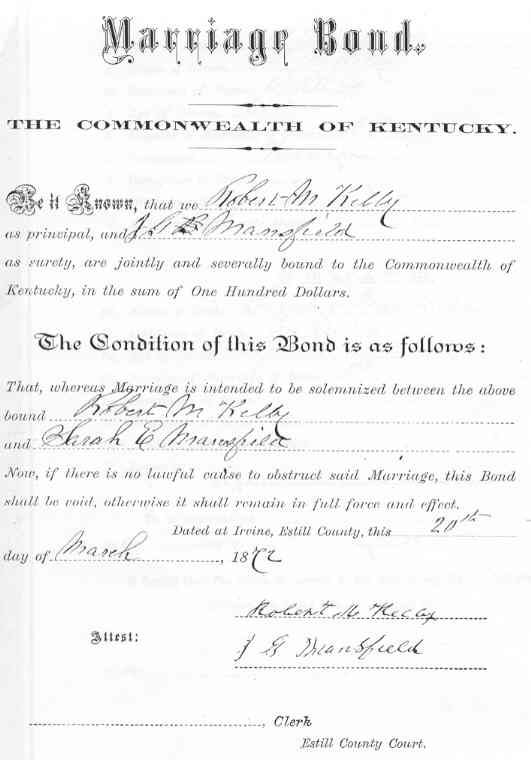 Marriage Bond.
THE COMMONWEALTH OF KENTUCKY.
Be it Known, that we Robert M Kelly
as principal, and J G Mansfield
as surety, are jointly and severally bound to the Commonwealth of
Kentucky, in the sum of One Hundred Dollars.
The Condition of this Bond is as follows:
That, whereas Marriage is intended to be solemnized between the above
bound Robert M Kelly
and Sarah E Mansfield
Now, if there is no lawful cause to obstruct said Marriage, this Bond
shall be void, otherwise it shall remain in full force and effect.
Dated at Irvine, Estill County, this 20th
day of March, 1872
Robert M Kelly
Attest:
J G Mansfield
, Clerk
Estill County Court.